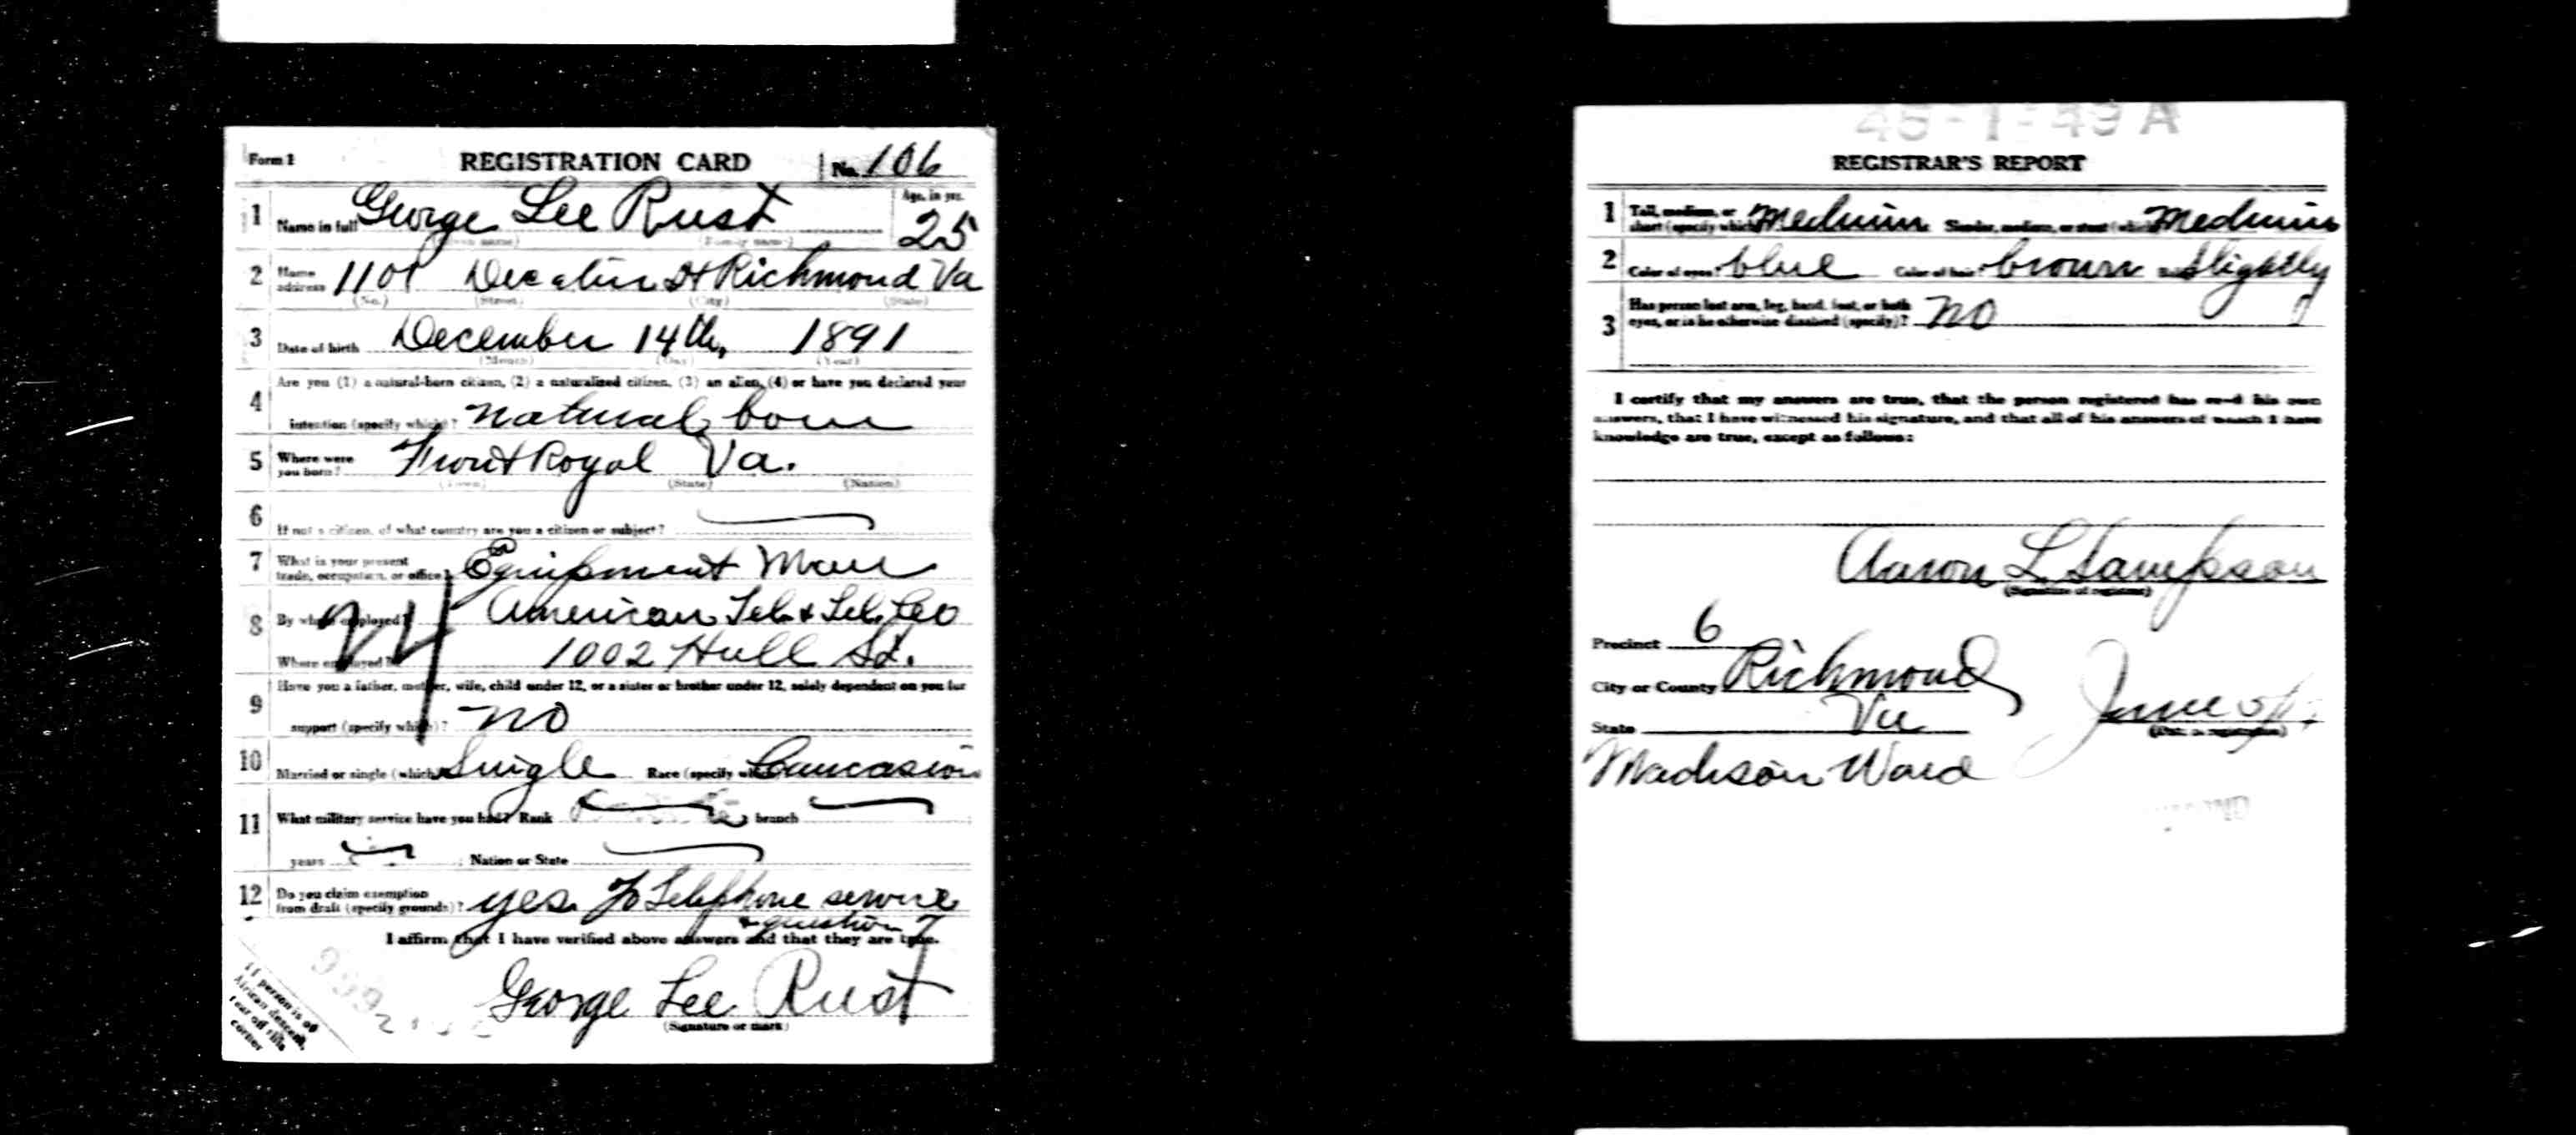 Form 1 REGISTRATION CARD No. 106
1 Name in full George Lee Rust Age, in yrs. 25
(Given name) (Family name)
2 Home address 1101 Decatur St Richmond Va
(No.) (Street) (City) (State)
3 Date of birth December 14th, 1891
(Month) (Day) (Year)
4 Are you (1) a natural-born citizen, (2) a naturalized citizen, (3) an alien, (4) or have you declared your
intention (specify which)? natural born
5 Where were you born? Front Royal Va.
(Town) (State) (Nation)
6 If not a citizen, of what country are you a citizen or subject?
7 What is your present trade, occupation, or office? Equipment Man
8 By whom employed? American Tel. & Tel. Co
Where employed? 1002 Hull St.
24
9 Have you a father, mother, wife, child under 12, or a sister or brother under 12, solely dependent on you for
support (specify which)? no
10 Married or single (which)? Single Race (specify which)? Caucasion
11 What military service have you had? Rank branch
years Nation or State
12 Do you claim exemption from draft (specify grounds)? yes. Telephone service
question 7
I affirm that I have verified above answers and that they are true.
George Lee Rust
(Signature or mark)
If person is of
African descent,
tear off this
corner
45-1-49 A
REGISTRAR'S REPORT
1 Tall, medium, or short (specify which)? Medium Slender, medium, or stout (which)? Medium
2 Color of eyes? blue Color of hair? brown Bald? Slightly
3 Has person lost arm, leg, hand, foot, or both
eyes, or is he otherwise disabled (specify)? no
I certify that my answers are true, that the person registered has read his own
answers, that I have witnessed his signature, and that all of his answers of which I have
knowledge are true, except as follows:
Aaron L. Sampson
(Signature of registrar)
Precinct 6
City or County Richmond
State Va June 5
(Date of registration)
Madison Ward